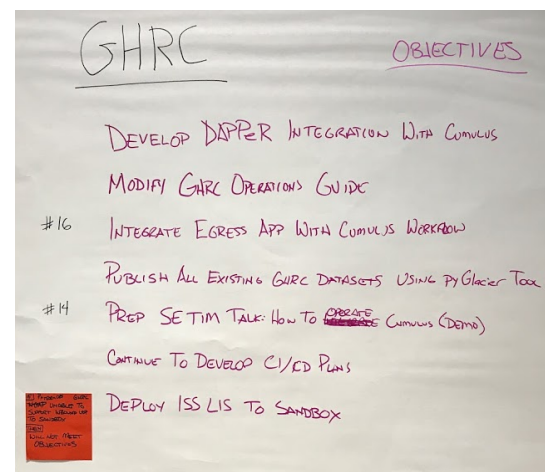 GHRC
OBJECTIVES
DEVELOP DAPPER INTEGRATION WITH CUMULUS
MODIFY GHRC OPERATIONS GUIDE
#16 INTEGRATE EGRESS APP WITH CUMULUS WORKFLOW
PUBLISH ALL EXISTING GHRC DATASETS USING PyGlacier TOOL
#14 PREP SE TIM TALK: HOW TO OPERATE CUMULUS (DEMO)
CONTINUE TO DEVELOP CI/CD PLANS
DEPLOY ISS LIS TO SANDBOX
GHRC
UNABLE TO
SUPPORT
TO SANDBOX
THEN
WILL NOT MEET
OBJECTIVES